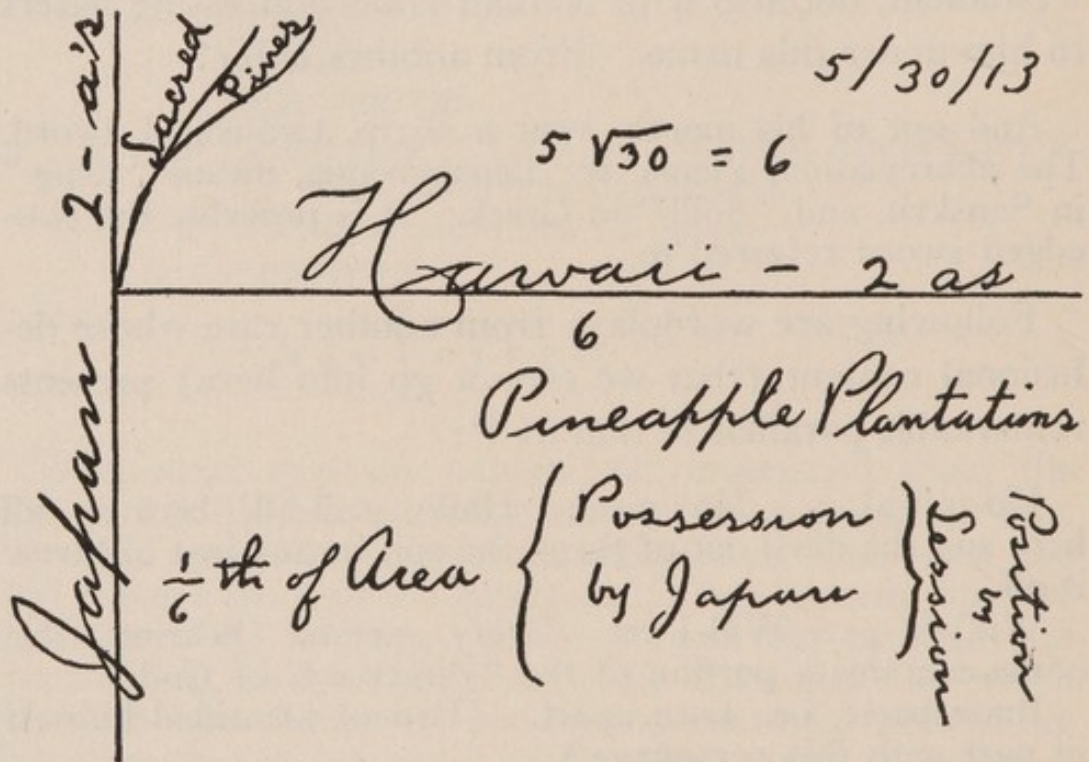 2 - a's
Sacred
Pines
5/30/13
5 √30 = 6
Hawaii - 2 as
6
Pineapple Plantations
Japan
1/6 th of Area
Possession
by Japan
Position
by
Session